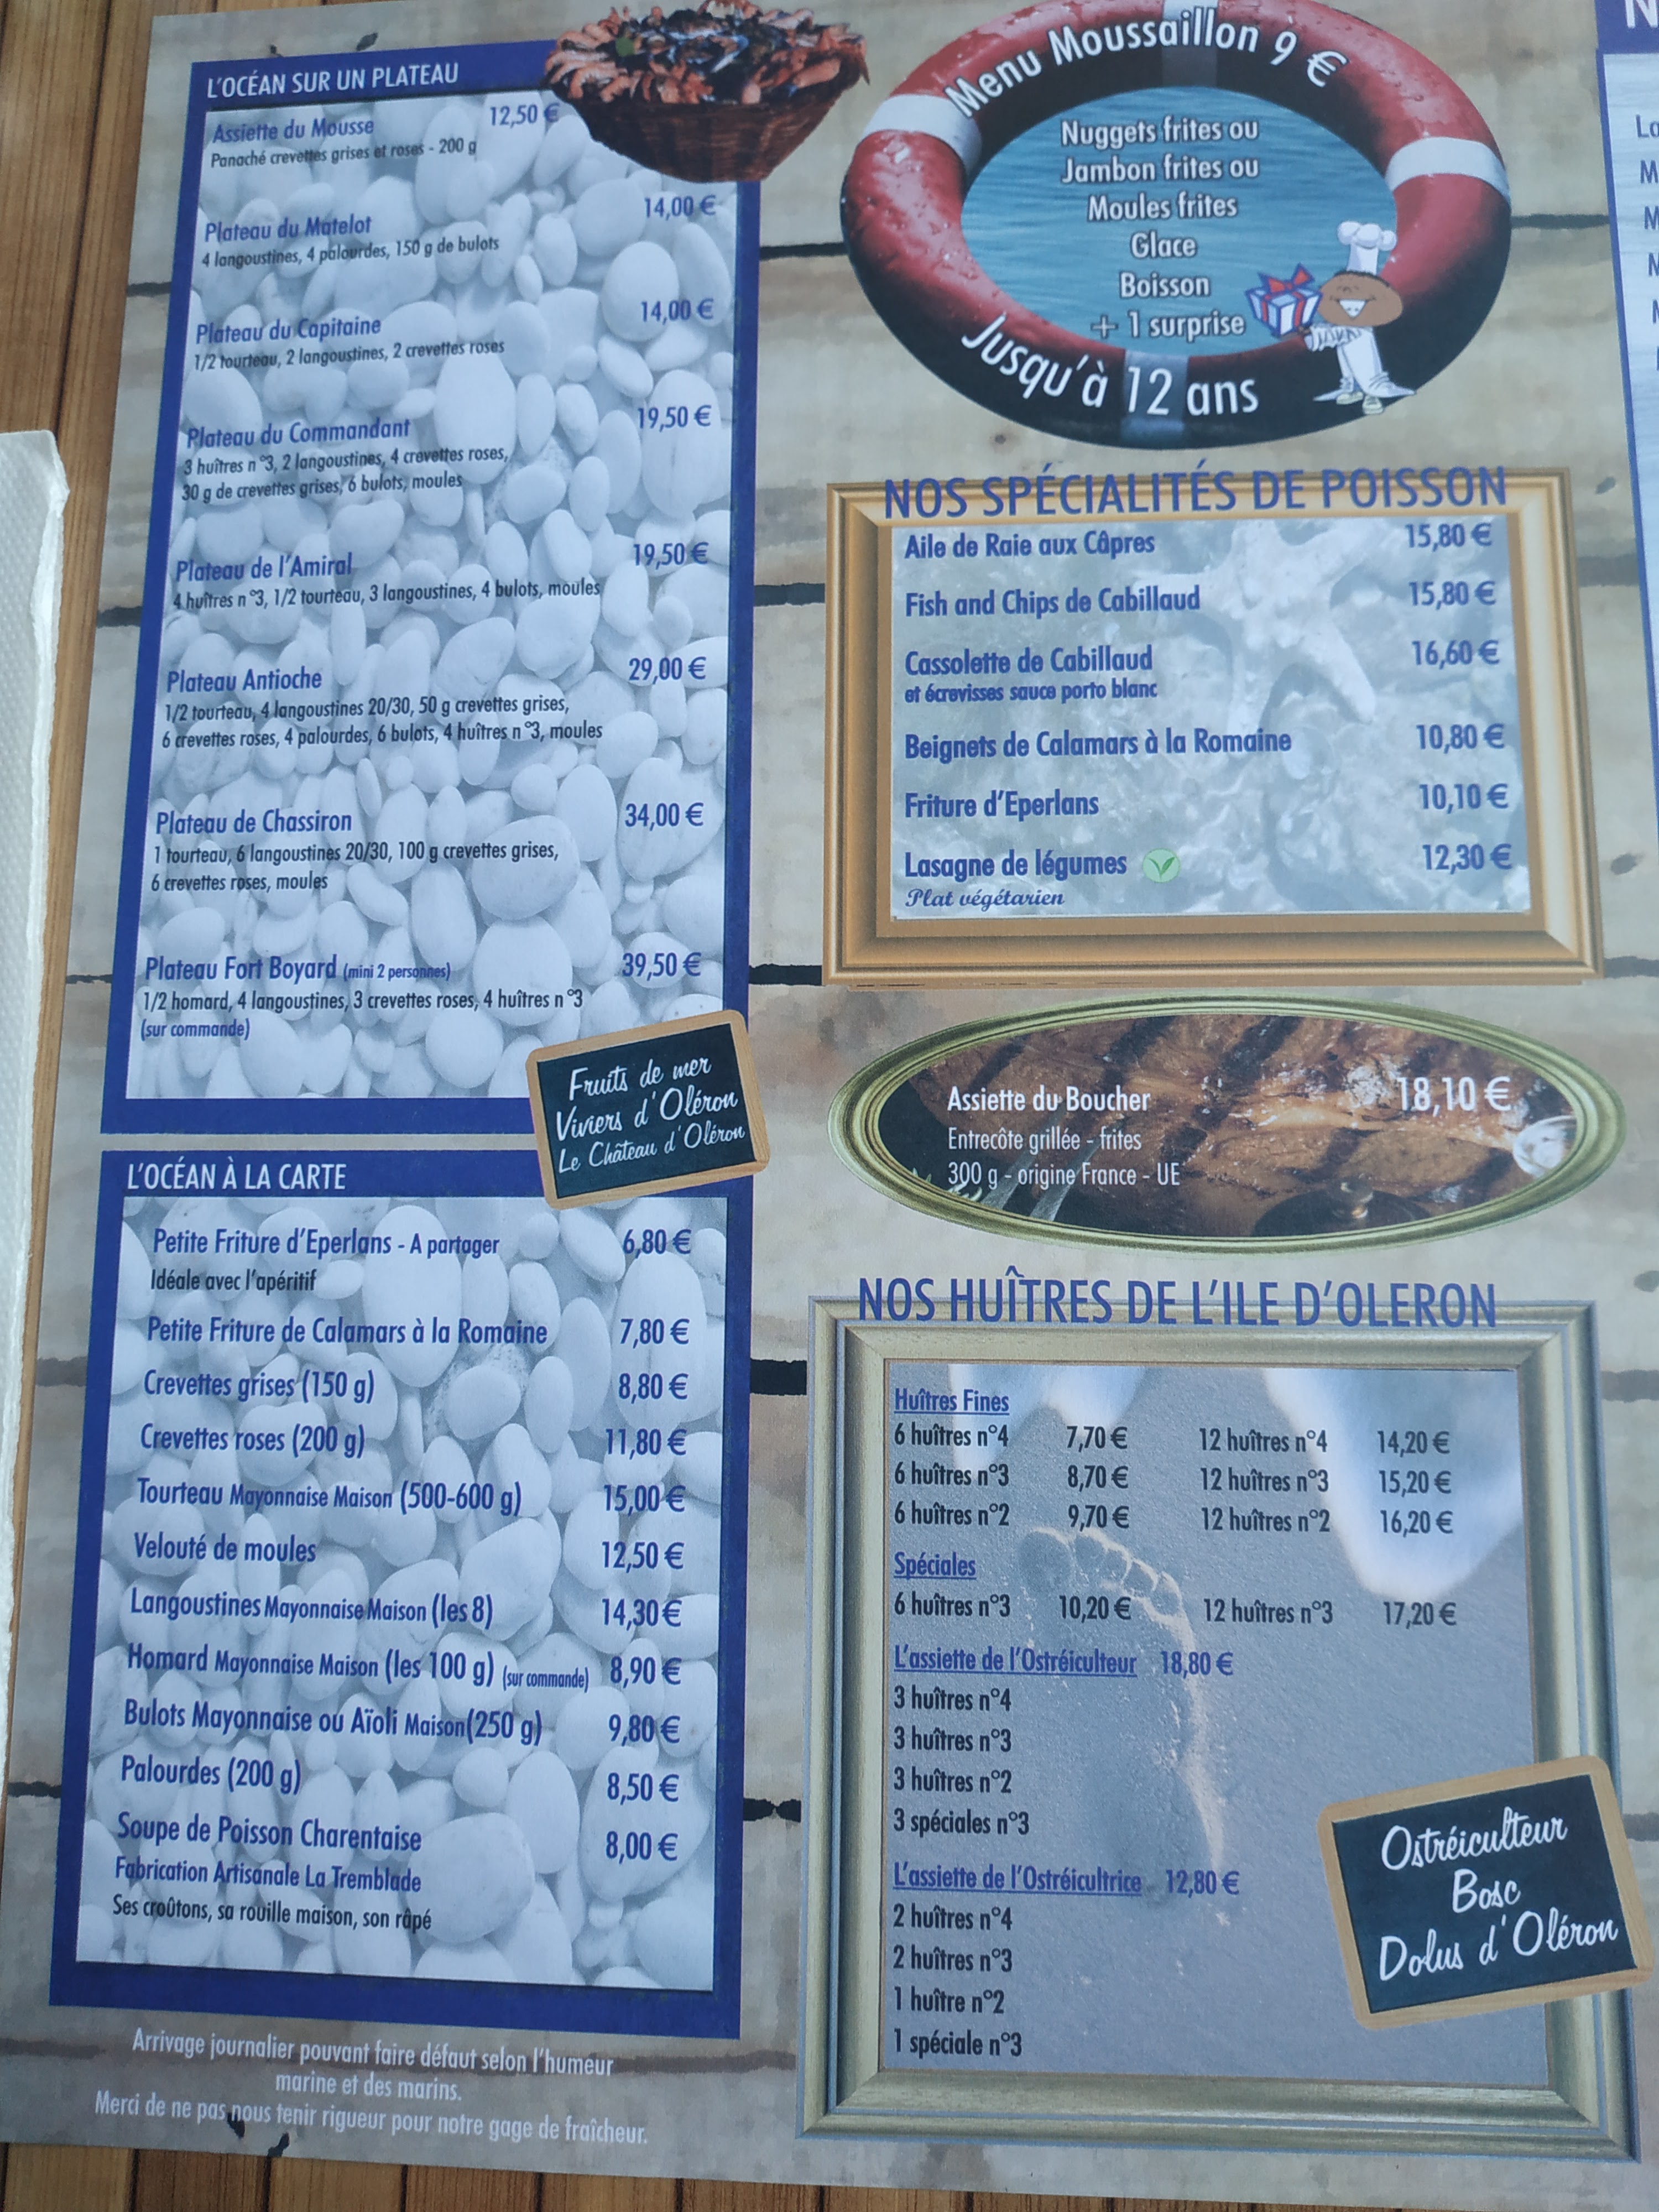 L'OCÉAN SUR UN PLATEAU
Assiette du Mousse 12,50 €
Panaché crevettes grises et roses - 200 g
Plateau du Matelot 14,00 €
4 langoustines, 4 palourdes, 150 g de bulots
Plateau du Capitaine 14,00 €
1/2 tourteau, 2 langoustines, 2 crevettes roses
Plateau du Commandant 19,50 €
3 huîtres n°3, 2 langoustines, 4 crevettes roses,
30 g de crevettes grises, 6 bulots, moules
Plateau de l'Amiral 19,50 €
4 huîtres n°3, 1/2 tourteau, 3 langoustines, 4 bulots, moules
Plateau Antioche 29,00 €
1/2 tourteau, 4 langoustines 20/30, 50 g crevettes grises,
6 crevettes roses, 4 palourdes, 6 bulots, 4 huîtres n°3, moules
Plateau de Chassiron 34,00 €
1 tourteau, 6 langoustines 20/30, 100 g crevettes grises,
6 crevettes roses, moules
Plateau Fort Boyard (mini 2 personnes) 39,50 €
1/2 homard, 4 langoustines, 3 crevettes roses, 4 huîtres n°3
(sur commande)
Fruits de mer
Viviers d'Oléron
Le Château d'Oléron
L'OCÉAN À LA CARTE
Petite Friture d'Eperlans - A partager 6,80 €
Idéale avec l'apéritif
Petite Friture de Calamars à la Romaine 7,80 €
Crevettes grises (150 g) 8,80 €
Crevettes roses (200 g) 11,80 €
Tourteau Mayonnaise Maison (500-600 g) 15,00 €
Velouté de moules 12,50 €
Langoustines Mayonnaise Maison (les 8) 14,30 €
Homard Mayonnaise Maison (les 100 g) (sur commande) 8,90 €
Bulots Mayonnaise ou Aïoli Maison (250 g) 9,80 €
Palourdes (200 g) 8,50 €
Soupe de Poisson Charentaise 8,00 €
Fabrication Artisanale La Tremblade
Ses croûtons, sa rouille maison, son râpé
Arrivage journalier pouvant faire défaut selon l'humeur
marine et des marins.
Merci de ne pas nous tenir rigueur pour notre gage de fraîcheur.
Menu Moussaillon 9 €
Nuggets frites ou
Jambon frites ou
Moules frites
Glace
Boisson
+ 1 surprise
Jusqu'à 12 ans
NOS SPÉCIALITÉS DE POISSON
Aile de Raie aux Câpres 15,80 €
Fish and Chips de Cabillaud 15,80 €
Cassolette de Cabillaud 16,60 €
et écrevisses sauce porto blanc
Beignets de Calamars à la Romaine 10,80 €
Friture d'Eperlans 10,10 €
Lasagne de légumes 12,30 €
Plat végétarien
Assiette du Boucher 18,10 €
Entrecôte grillée - frites
300 g - origine France - UE
NOS HUÎTRES DE L'ILE D'OLERON
Huîtres Fines
6 huîtres n°4 7,70 € 12 huîtres n°4 14,20 €
6 huîtres n°3 8,70 € 12 huîtres n°3 15,20 €
6 huîtres n°2 9,70 € 12 huîtres n°2 16,20 €
Spéciales
6 huîtres n°3 10,20 € 12 huîtres n°3 17,20 €
L'assiette de l'Ostréiculteur 18,80 €
3 huîtres n°4
3 huîtres n°3
3 huîtres n°2
3 spéciales n°3
L'assiette de l'Ostréicultrice 12,80 €
2 huîtres n°4
2 huîtres n°3
1 huître n°2
1 spéciale n°3
Ostréiculteur
Bosc
Dolus d'Oléron